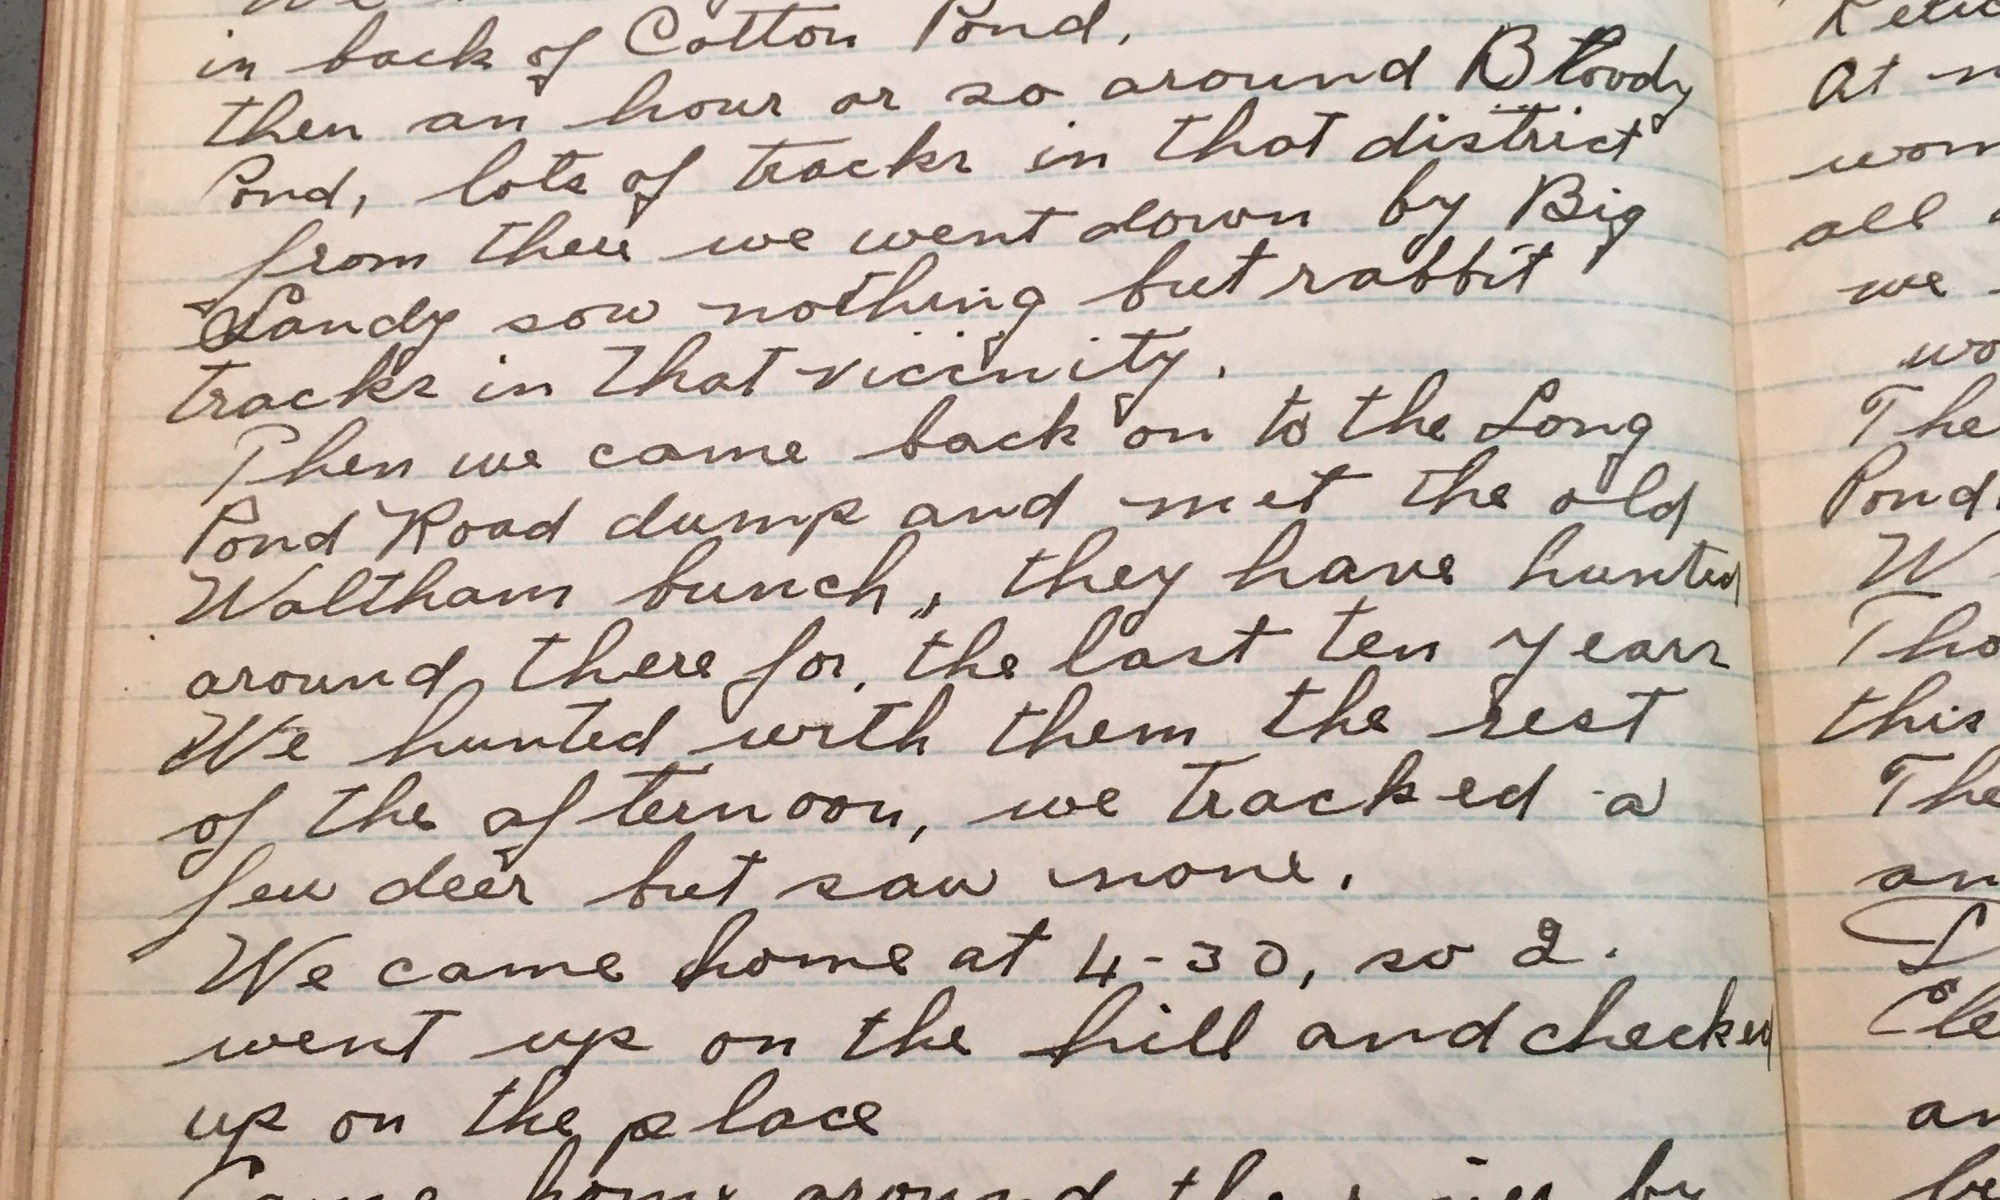 We
in back of Cotton Pond,
then an hour or so around Bloody
Pond, lots of tracks in that district
from there we went down by Big
Sandy saw nothing but rabbit
tracks in that vicinity.
Then we came back on to the Long
Pond Road dump and met the old
Waltham bunch, they have hunted
around there for, the last ten years
We hunted with them the rest
of the afternoon, we tracked a
few deer but saw none.
We came home at 4-30, so I.
went up on the hill and checked
up on the place
Came home around the by
At
wom
all
we
wo
The
Pond.
W
Tho
this
The
an
Ele
an
be